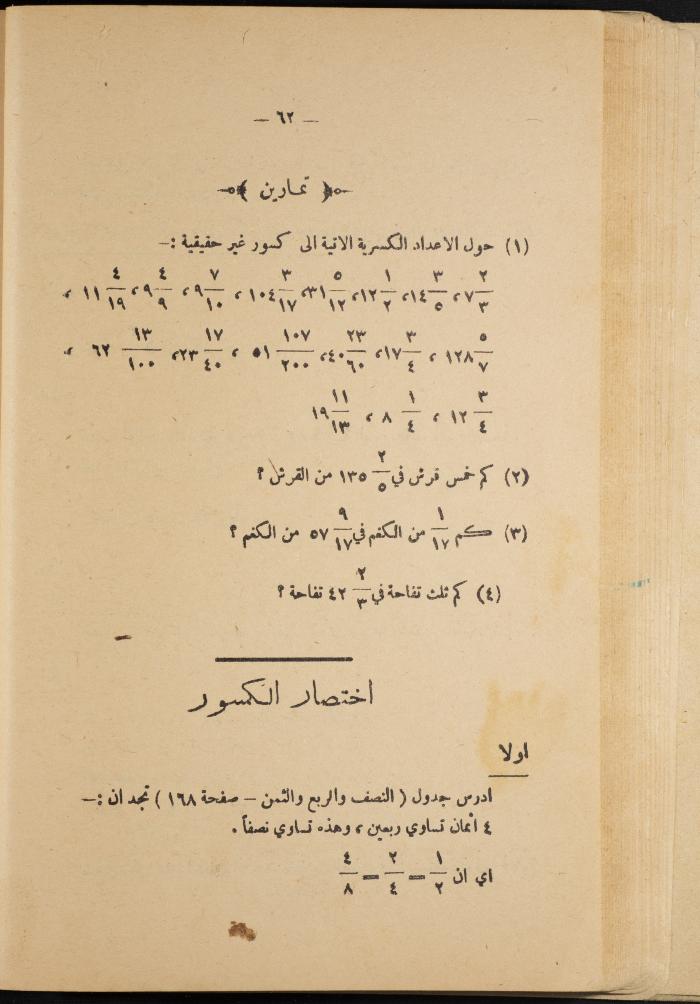 — ٦٢ —
﴿ تمارين ﴾
(١) حول الاعداد الكسرية الاتية الى كسور غير حقيقية :—
٧ ٢/٣ ، ١٤ ٣/٥ ، ١٢ ١/٢ ، ٣١ ٥/١٢ ، ١٠٤ ٣/١٧ ، ٩ ٧/١٠ ، ٩ ٤/٩ ، ١١ ٤/١٩ ،
١٢٨ ٥/٧ ، ١٧ ٣/٤ ، ٤٠ ٢٣/٦٠ ، ٥١ ١٠٧/٢٠٠ ، ٢٣ ١٧/٤٠ ، ٦٢ ١٣/١٠٠ ،
١٢ ٣/٤ ، ٨ ١/٤ ، ١٩ ١١/١٣
(٢) كم خمس قرش في ١٣٥ ٢/٥ من القرش ؟
(٣) كم ١/١٧ من الكغم في ٥٧ ٩/١٧ من الكغم ؟
(٤) كم ثلث تفاحة في ٤٢ ٢/٣ تفاحة ؟
اختصار الكسور
اولا
ادرس جدول ( النصف والربع والثمن — صفحة ١٦٨ ) تجد ان :—
٤ أثمان تساوي ربعين ، وهذه تساوي نصفاً .
اي ان ١/٢ = ٢/٤ = ٤/٨